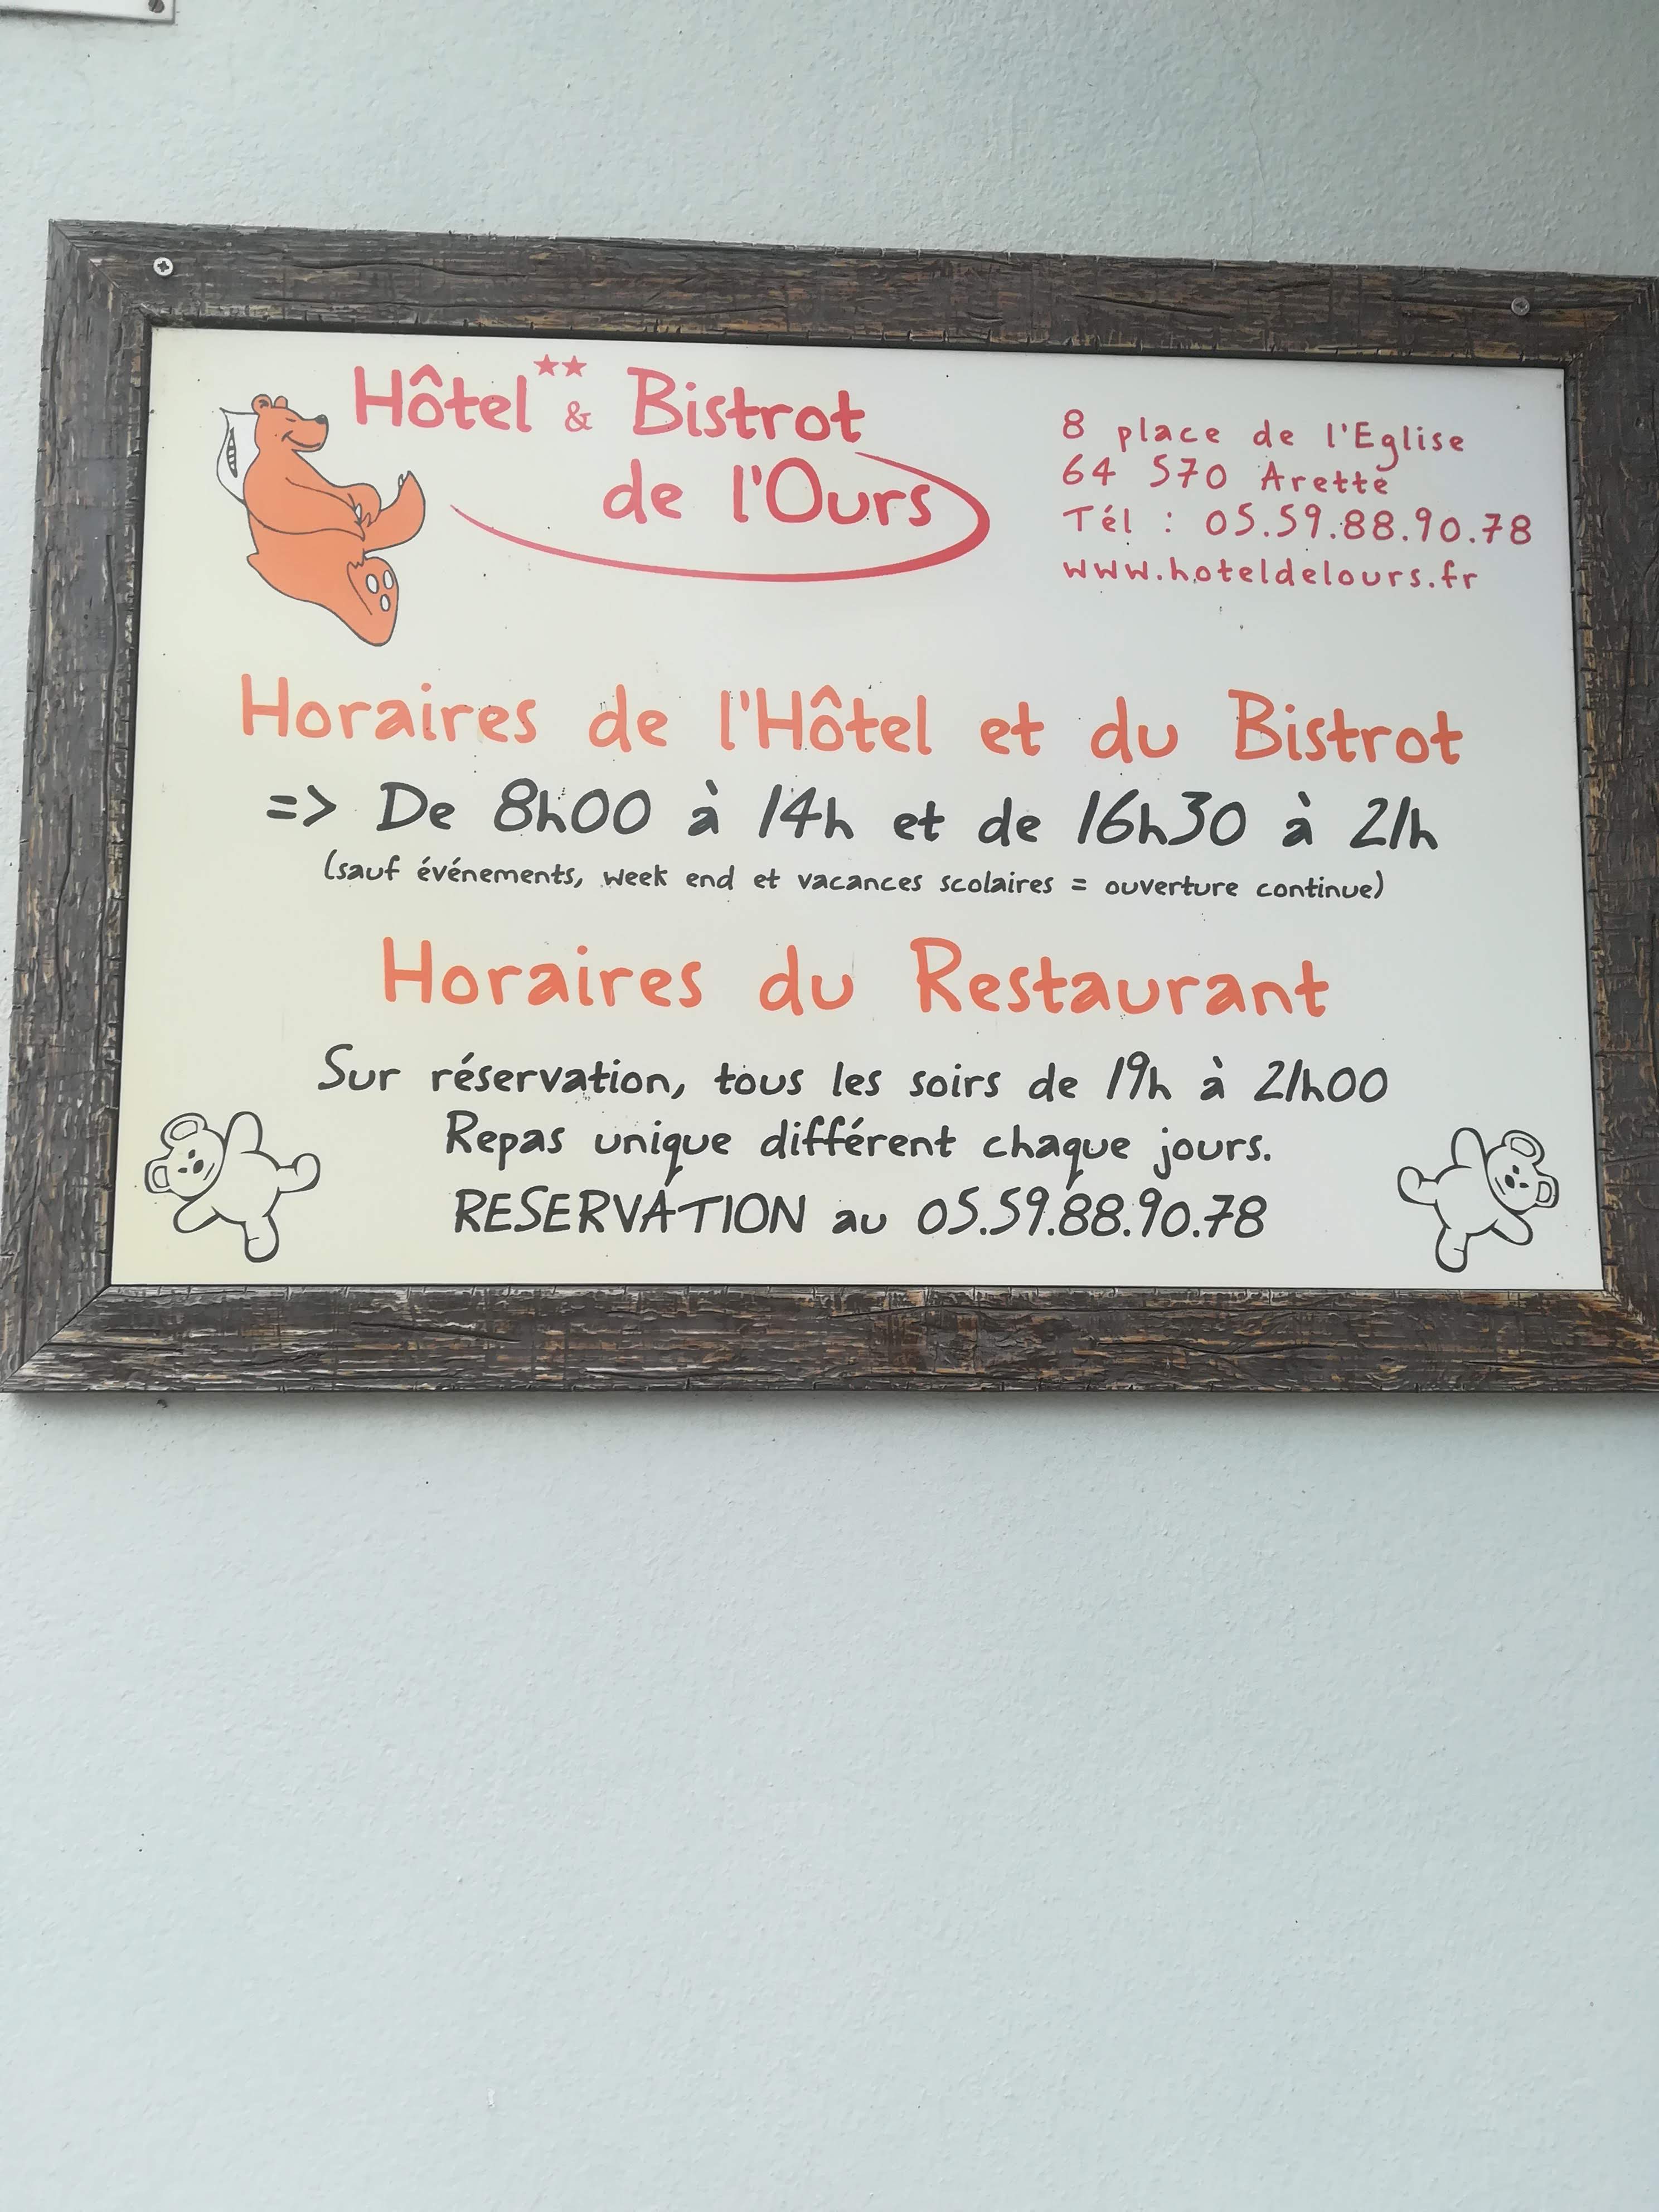 Hôtel** & Bistrot
de l'Ours
8 place de l'Eglise
64 570 Arette
Tél : 05.59.88.90.78
www.hoteldelours.fr
Horaires de l'Hôtel et du Bistrot
=> De 8h00 à 14h et de 16h30 à 21h
(sauf événements, week end et vacances scolaires = ouverture continue)
Horaires du Restaurant
Sur réservation, tous les soirs de 19h à 21h00
Repas unique différent chaque jours.
RESERVATION au 05.59.88.90.78